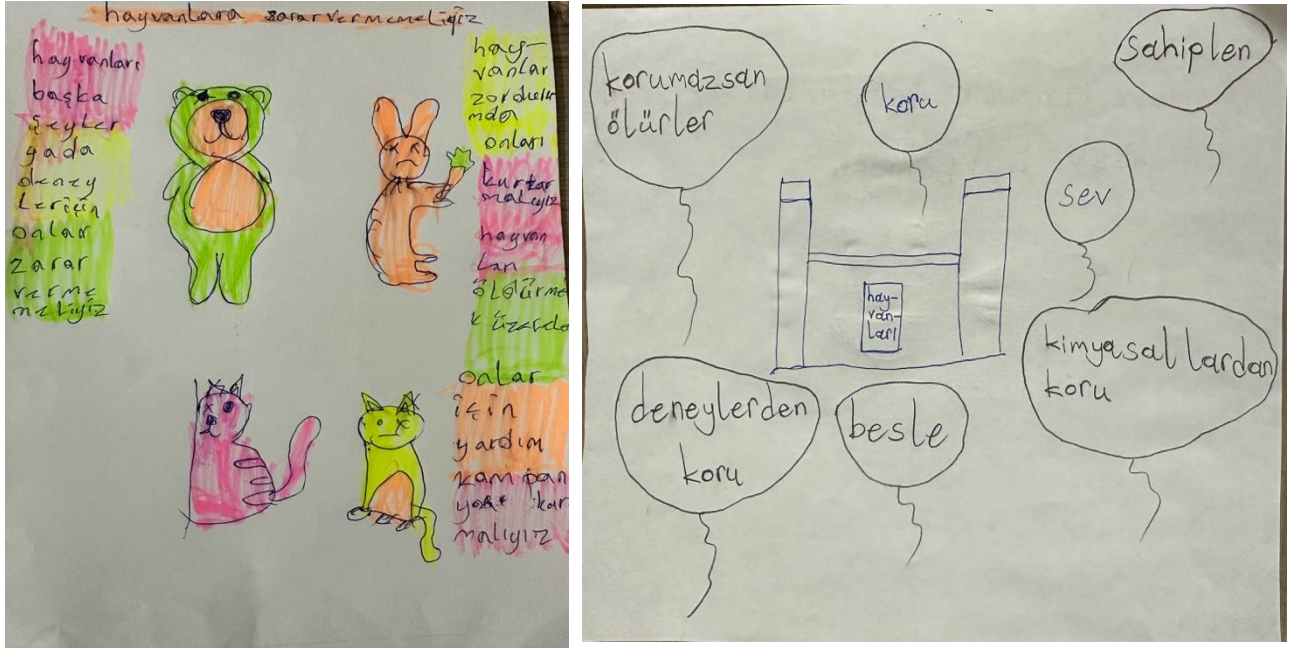 hayvanlara zarar vermemeliyiz
hayvanları
başka
şeyler
yada
deney
leriçin
onlar
zarar
verme
meliyiz
hay-
vanlar
zordurum
mda
onları
kurtar
malıyız
hayvan
ları
öldürme
k üzerede
onlar
için
yardım
kampan
malıyız
korumazsan
ölürler
koru
sahiplen
sev
hay-
van-
ları
kimyasallardan
koru
deneylerden
koru
besle